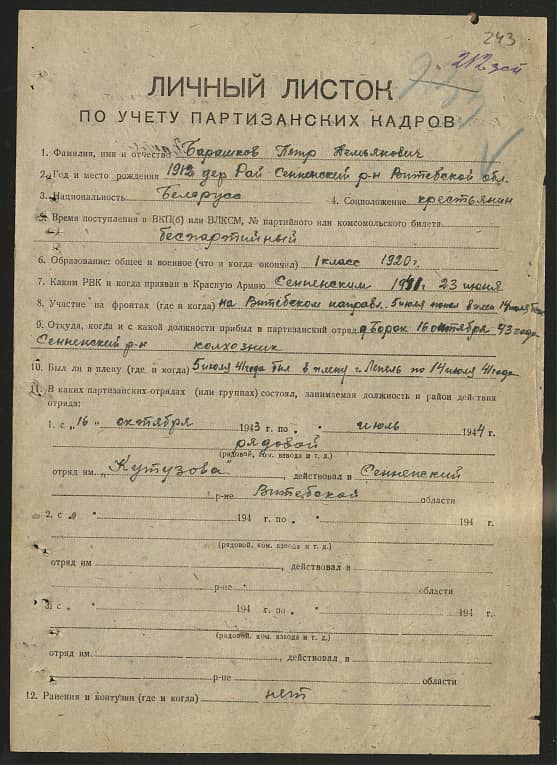 243
212 зой
ЛИЧНЫЙ ЛИСТОК
ПО УЧЕТУ ПАРТИЗАНСКИХ КАДРОВ
1. Фамилия, имя и отчество Барашков Петр Демьянович
2. Год и место рождения 1912 дер Рай Сенненский р-н Витебской обл.
3. Национальность Беларусс 4. Соцположение крестьянин
5. Время поступления в ВКП(б) или ВЛКСМ, № партийного или комсомольского билета
беспартийный
6. Образование: общее и военное (что и когда окончил) 1 класс 1920 г.
7. Каким РВК и когда призван в Красную Армию Сенненским 1941 г. 23 июня
8. Участие на фронтах (где и когда) на Витебском направл. 5 июля попал в плен 14 июля
9. Откуда, когда и с какой должности прибыл в партизанский отряд дворок 16 октября 43 года
Сенненский р-н колхозник
10. Был ли в плену (где и когда) 5 июля 41 года был в плену г. Лепель по 14 июля 41 года
11. В каких партизанских отрядах (или группах) состоял, занимаемая должность и район действия
отряда:
1. с „16" октября 1943 г. по „ " июль 1944 г.
рядовой
(рядовой, ком. взвода и т. д.)
отряд им. „Кутузова", действовал в Сенненский
р-не Витебской области
2. с „ " 194 г. по „ " 194 г.
(рядовой, ком. взвода и т. д.)
отряд им , действовал в
р-не области
3. с „ " 194 г. по „ " 194 г.
(рядовой, ком. взвода и т. д.)
отряд им. , действовал в
р-не области
12. Ранения и контузии (где и когда) нет